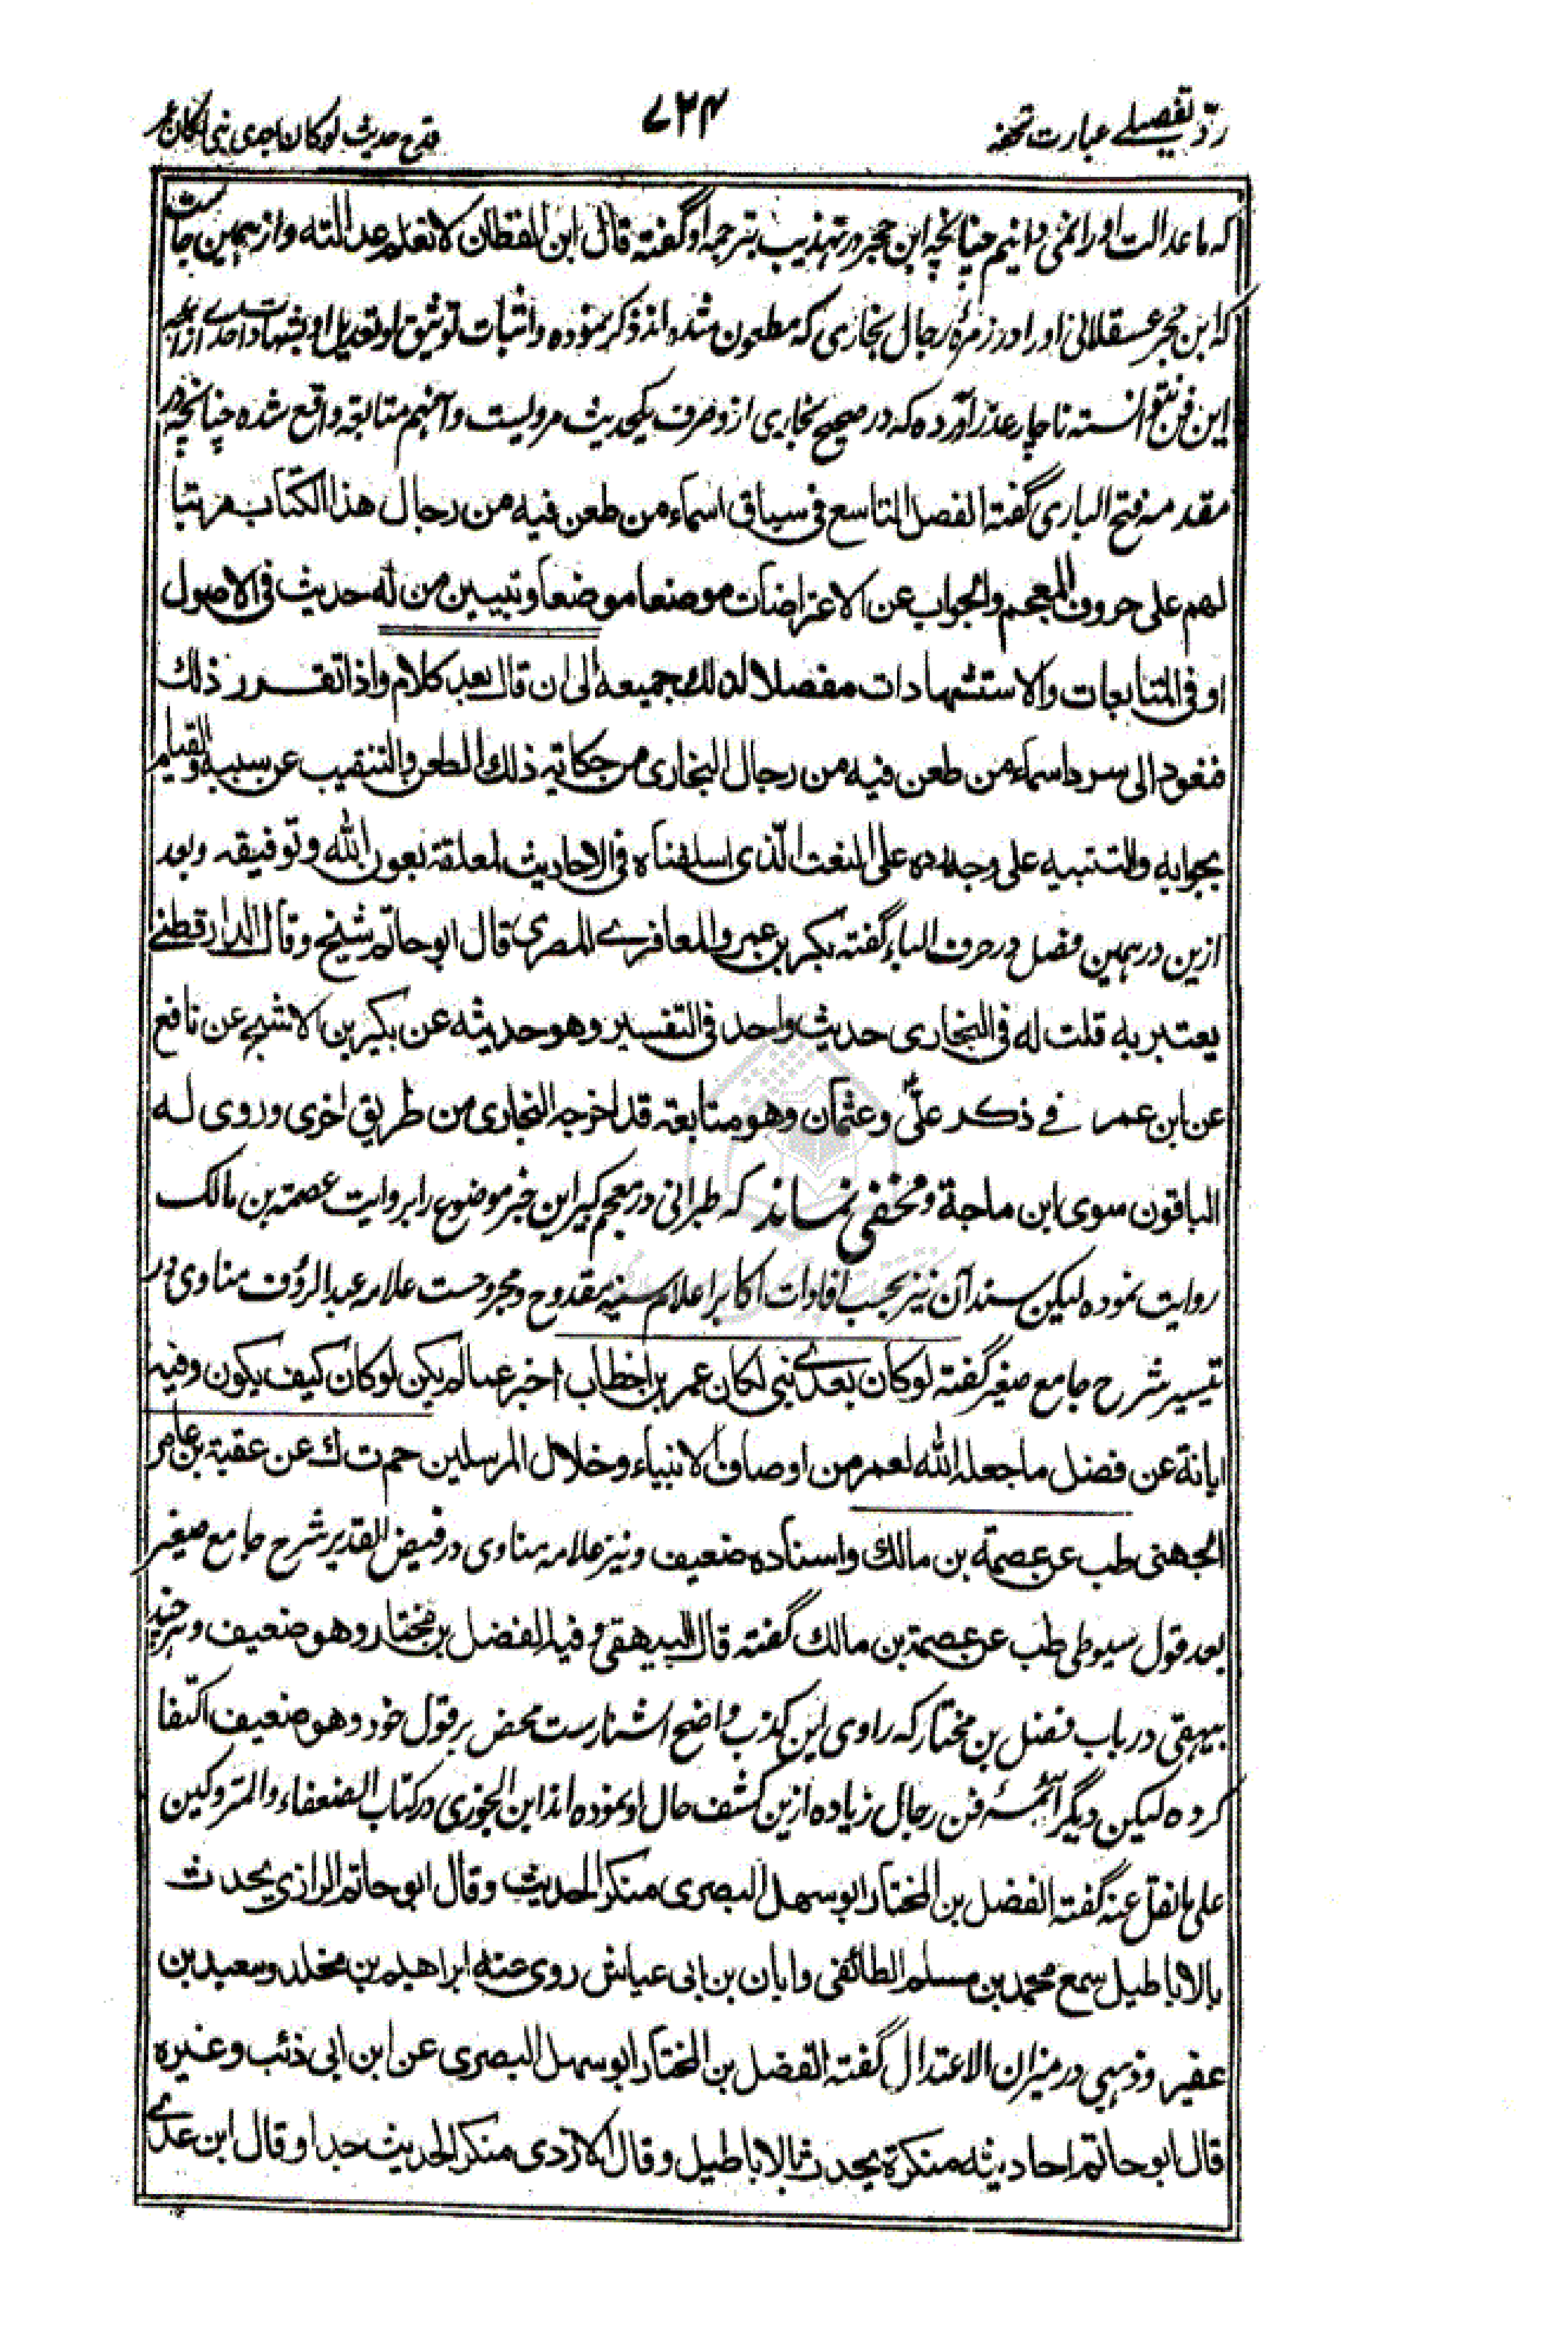 ردّ تفصیلے عبارت تحفه
۷۲۴
قدح حدیث لوکان بعدی نبی لکان عمر
که ما عدالت او را نمی دانیم چنانچه ابن حجر در تهذیب بترجمه او گفته قال ابن القطان لا نعلم عدالته و از همین جاست
که ابن حجر عسقلانی او را در زمرهٔ رجال بخاری که مطعون شده اند ذکر نموده و اثبات توثیق او و تعدیل او بشهادت احدے از ائمه
این فن نتوانسته ناچار عذر آورده که در صحیح بخاری از و صرف یکحدیث مرویست و آنهم متابعة واقع شده چنانچه در
مقدمه فتح الباری گفته الفصل التاسع فی سیاق اسماء من طعن فیه من رجال هذا الکتاب مرتبا
لهم علی حروف المعجم والجواب عن الاعتراضات موضعا موضعا وتبیین من له حدیث فی الاصول
او فی المتابعات والاستشهادات مفصلا لذلك جمیعه الی ان قال بعد کلام واذا تقرر ذلك
فنعود الی سرد اسماء من طعن فیه من رجال البخاری من حکایة ذلك الطعن والتنقیب عن سببه والقیام
بجوابه والتنبیه علی وجه رده علی النعت الّذی اسلفناه فی الاحادیث المعلقة بعون الله وتوفیقه وبعد
ازین در همین فصل در حرف الباء گفته بکر بن عمرو المعافرے المصری قال ابو حاتم شیخ وقال الدارقطنے
یعتبر به قلت له فی البخاری حدیث واحد فی التفسیر وهو حدیثه عن بکیر بن الاشج عن نافع
عن ابن عمر فی ذکر علیّ وعثمان وهو متابعة قد اخرجه البخاری من طریق اخری وروی له
الباقون سوی ابن ماجة و مخفی نماند که طبرانی در معجم کبیر این خبر موضوع را بروایت عصمة بن مالک
روایت نموده لیکن سند آن نیز بحسب افادات اکابر اعلام سنیه مقدوح و مجروحست علامه عبد الرؤف مناوی در
تیسیر شرح جامع صغیر گفته لو کان بعدے نبی لکان عمر بن الخطاب اخبر عما لم یکن لو کان کیف یکون وفیه
ابانة عن فضل ما جعله الله لعمر من اوصاف الانبیاء وخلال المرسلین حم ت ك عن عقبة بن عامر
الجهنی طب عن عصمة بن مالك واسناده ضعیف و نیز علامه مناوی در فیض القدیر شرح جامع صغیر
بعد قول سیوطی طب عن عصمة بن مالك گفته قال البیهقی وفیه الفضل بن مختار وهو ضعیف و هر چند
بیهقی در باب فضل بن مختار که راوی این کذب واضح الشنارست محض بر قول خود وهو ضعیف اکتفا
کرده لیکن دیگر ائمهٔ فن رجال زیاده ازین کشف حال او نموده اند ابن الجوزی در کتاب الضعفاء والمتروکین
علی ما نقل عنه گفته الفضل بن المختار ابو سهل البصری منکر الحدیث وقال ابو حاتم الرازی یحدث
بالاباطیل سمع محمد بن مسلم الطائفی وابان بن ابی عیاش روی عنه ابراهیم بن مخلد وسعید بن
عفیر و ذهبی در میزان الاعتدال گفته الفضل بن المختار ابو سهل البصری عن ابن ابی ذئب وغیره
قال ابو حاتم احادیثه منکرة یحدث بالاباطیل وقال الازدی منکر الحدیث جدا وقال ابن عدے